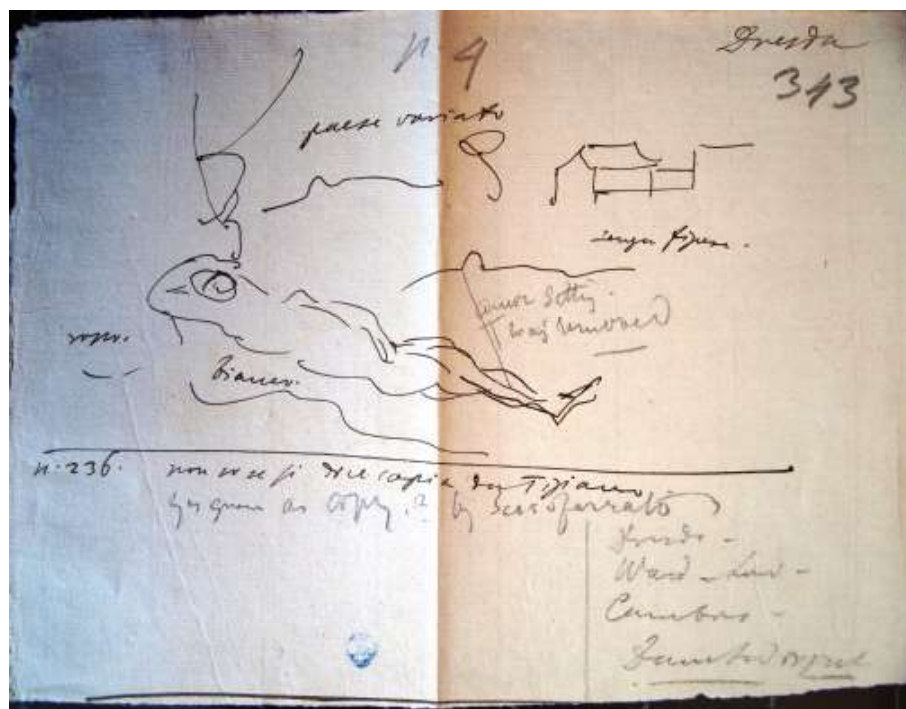 n. 4
Dresda
343
paese variato
senza figure.
amor
was removed
rosso.
bianco.
n. 236. non so se si dice copia da Tiziano
given as copy.? by Sassoferrato
Dresda -
Ward -
Cambro -